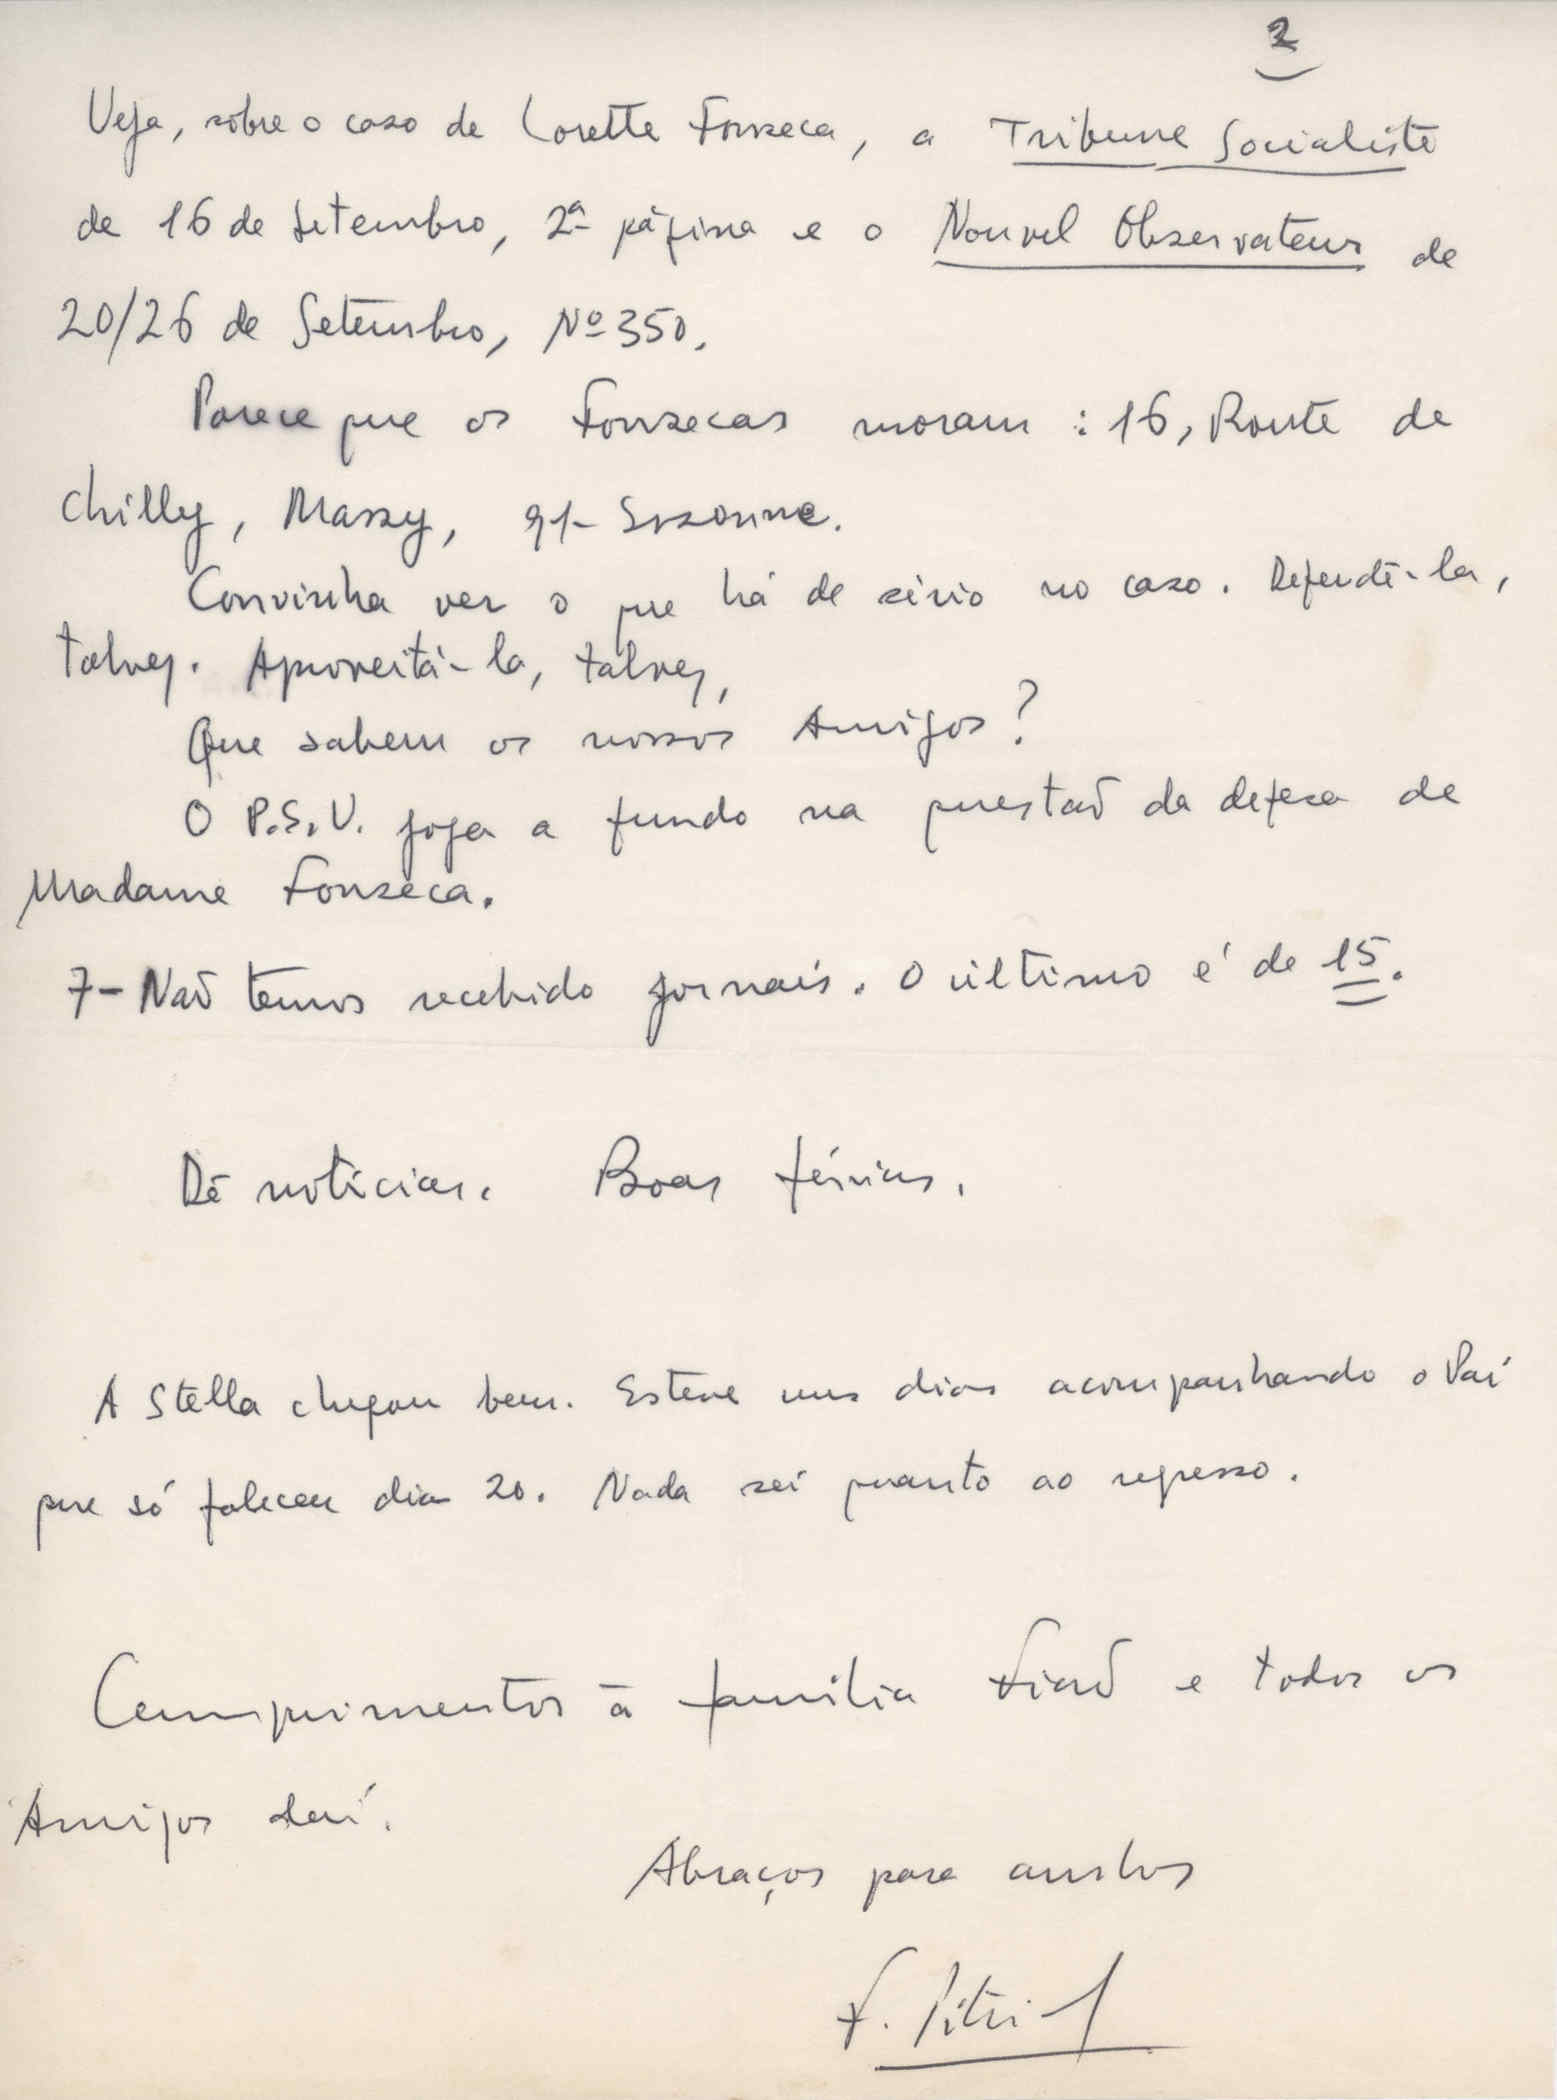 2
Veja, sôbre o caso de Lorette Fonseca, a Tribune Socialiste
de 16 de Setembro, 2ª página e o Nouvel Observateur de
20/26 de Setembro, Nº 350.
Parece que os Fonsecas moram : 16, Route de
Chilly, Massy, 91- Essonne.
Convinha ver o que há de sério no caso. Defendê-la,
talvez. Aproveitá-la, talvez,
Que sabem os nossos Amigos?
O P.S.U. joga a fundo na questão da defesa de
Madame Fonseca.
7- Não temos recebido jornais. O último é de 15.
Dê notícias. Boas férias.
A Stella chegou bem. Esteve uns dias acompanhando o Pai
que só faleceu dia 20. Nada sei quanto ao regresso.
Cumprimentos à família e todos os
Amigos daí.
Abraços para ambos
F.